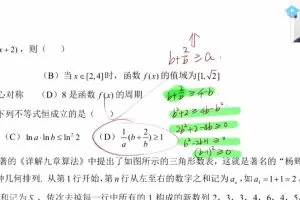 b+2/b ≥ a.
x+2)，则（ ）
（B）当 x∈[2,4]时，函数 f(x)的值域为[1,√2]
心对称 （D）8 是函数 f(x)的周期.
b+2/b ≥ 4-b
下列不等式恒成立的是（ ）
b²+2 ≥ 4b-b²
（C）ln a·ln b ≤ ln² 2 （D）1/a(b+2/b) ≥ 1
2b²+2-4b ≥ 0
b²-2b+1 ≥ 0
(b-1)² ≥ 0
著的《详解九章算法》中提出了如图所示的三角形数表，这就是著名的“杨辉
种几何排列. 从第 1 行开始，第 n 行从左至右的数字之和记为 aₙ，如 a₁=1+1=2
和记为 Sₙ，依次去掉每一行中所有的 1 构成的新数列 2，3，3，4，6，4